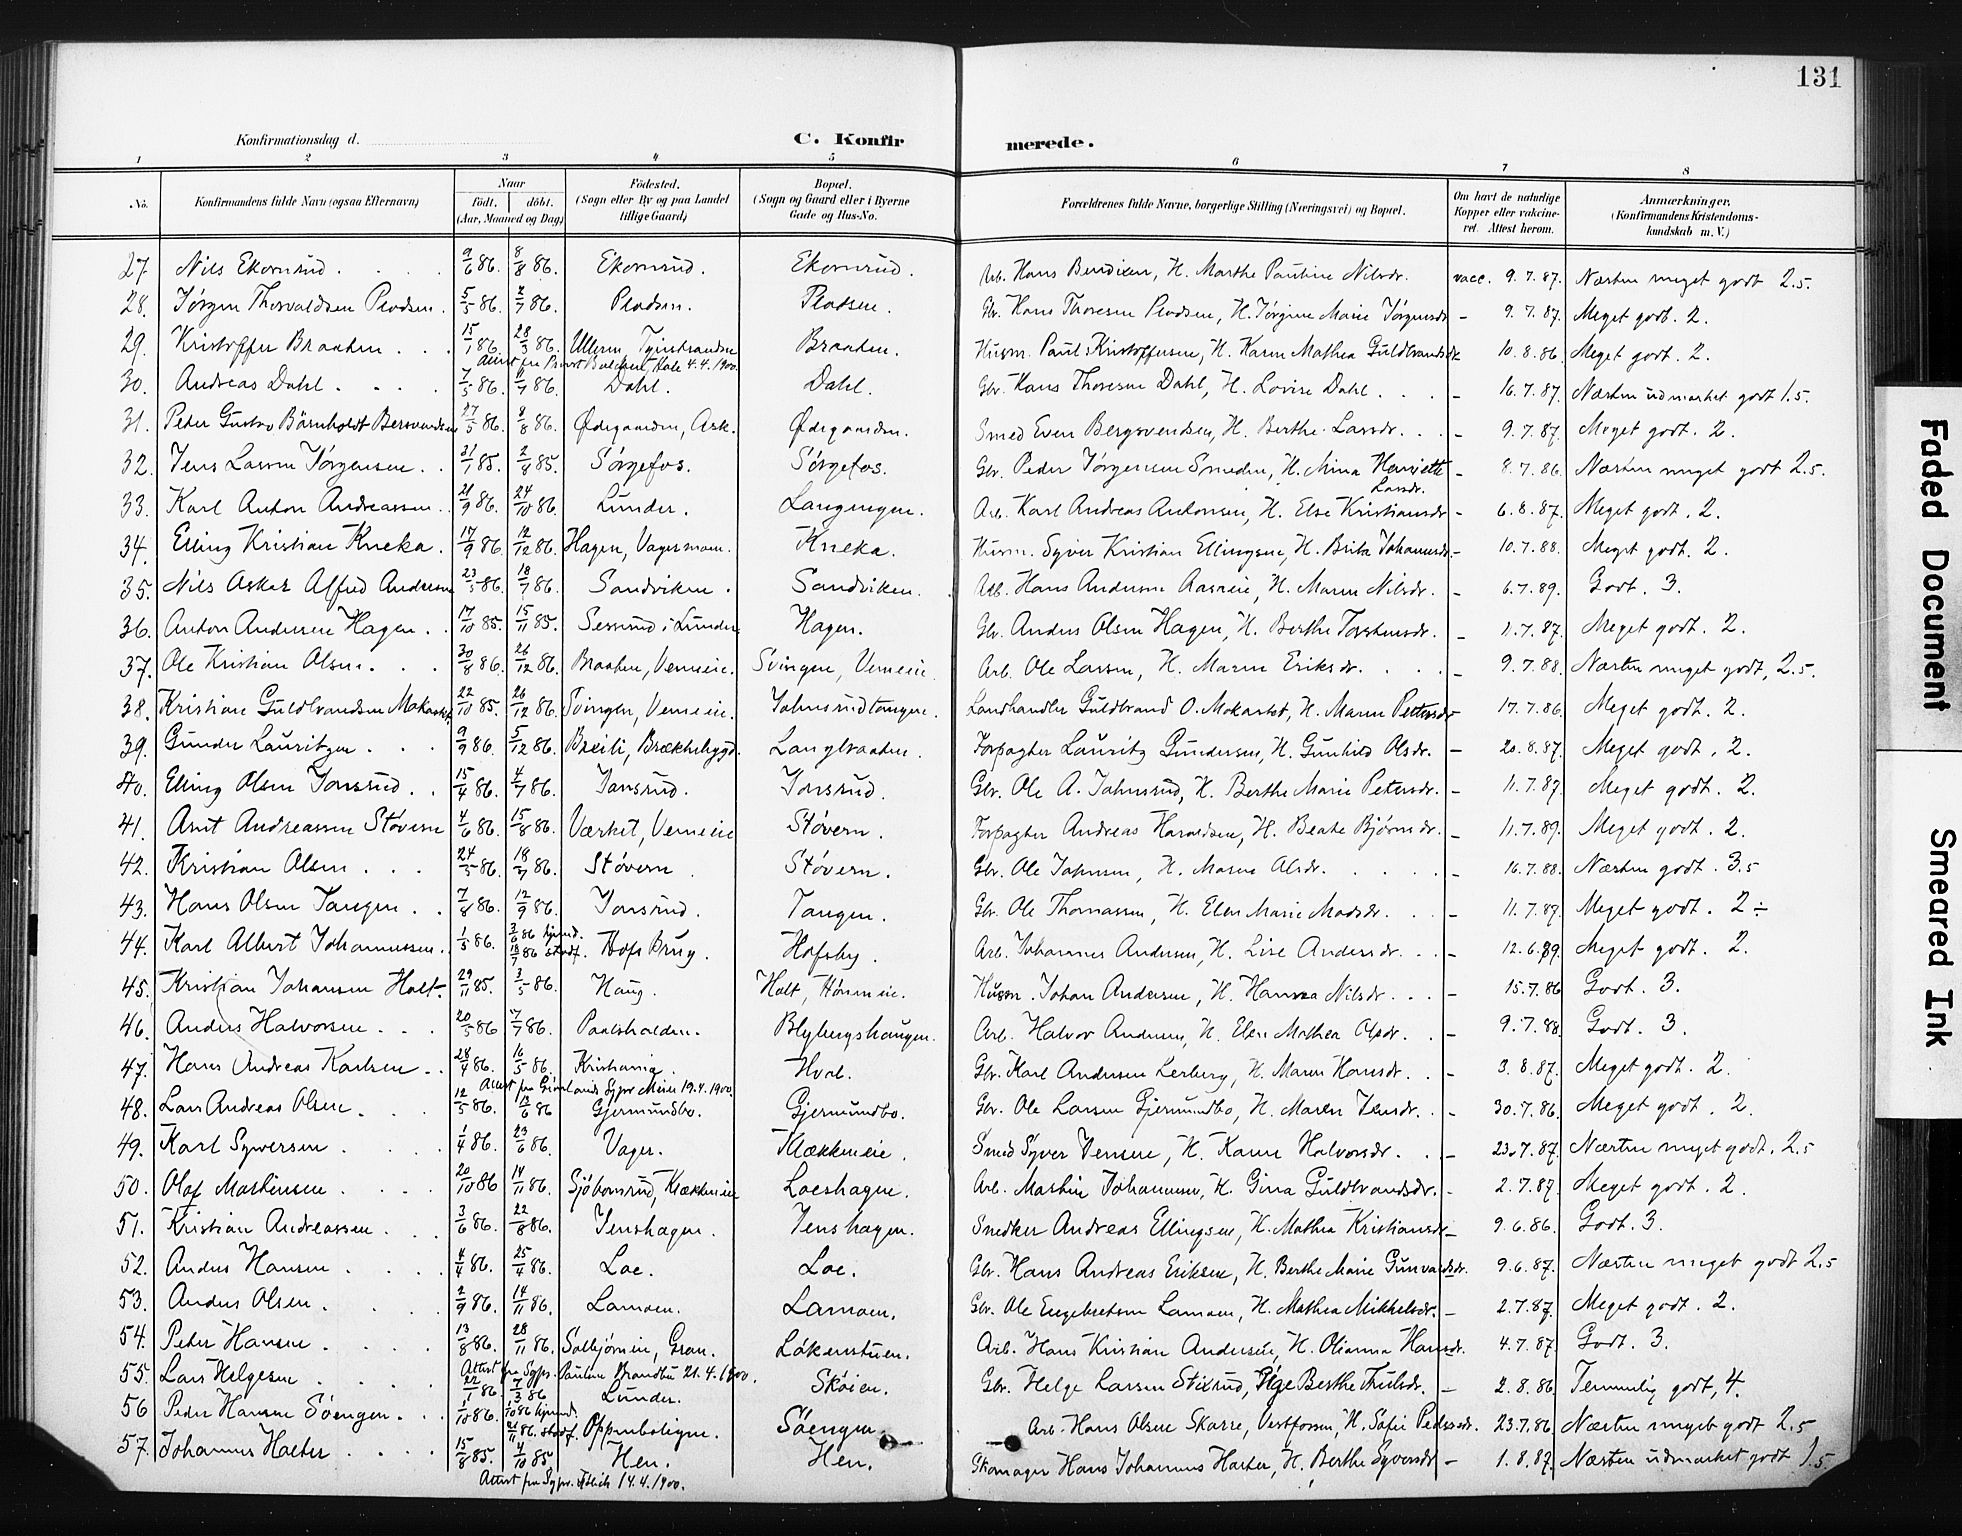 131
Konfirmationsdag d.
C. Konfirmerede.
1 2 3 4 5 6 7 8
No. Konfirmandens fulde Navn (ogsaa Efternavn) Naar födt. döbt. (Aar, Maaned og Dag) Födested. (Sogn eller By og paa Landet tillige Gaard) Bopæl. (Sogn og Gaard eller i Byerne Gade og Hus-No. Forældrenes fulde Navne, borgerlige Stilling (Næringsvei) og Bopæl. Om havt de naturlige Kopper eller vaccineret. Attest herom. Anmærkninger. (Konfirmandens Kristendomskundskab m. V.)
27. Nils Ekornrud. 9/6 86. 8/8 86. Ekornrud. Ekornrud. Arb. Hans Bendixen, H. Marthe Pauline Nilsdr. vacc. 9.7.87. Næsten meget godt 2.5.
28. Jörgen Thorvaldsen Plodsen. 5/5 86. 2/7 86. Plodsen. Plodsen. Gbr. Hans Thoresen Plodsen, H. Jörgine Marie Jörgensdr. – 9.7.87. Meget godt. 2.
29. Kristoffer Braaten. 15/1 86. 28/3 86. Ullern Tyristranden Braaten. Husm. Paul Kristoffersen, H. Karen Mathea Guldbrandsdr. 10.8.86. Meget godt. 2.
4.4.1900.
30. Andreas Dahl. 7/5 86. 11/7 86. Dahl. Dahl. Gbr. Hans Thoresen Dahl, H. Lovise Dahl. – 16.7.87. Næsten udmærket godt 1.5.
31. Peder Gustav Börnholdt Bersvendsen 27/5 86. 8/8 86. Ødegaarden, Ask. Ødegaarden. Smed Even Bergsvendsen, H. Berthe Larsdr. – 9.7.87. Meget godt. 2.
32. Jens Larsen Jörgensen. 31/1 85. 2/4 85. Sörgefos. Sörgefos. Gbr. Peder Jörgensen Smeden, H. Mina Henriette Larsdr. – 8.7.86. Næsten meget godt 2.5.
33. Karl Anton Andreassen. 21/9 86. 24/10 86. Lunder. Langingen. Arb. Karl Andreas Antonsen, H. Else Kristiansdr. – 6.8.87. Meget godt. 2.
34. Elling Kristian Kneka. 17/9 86. 12/12 86. Hagen, Vagermoen. Kneka. Husm. Syver Kristian Ellingsen, H. Brita Johannesdr. – 10.7.88. Meget godt. 2.
35. Nils Oskar Alfred Andersen 23/5 86. 18/7 86. Sandviken. Sandviken. Arb. Hans Andersen Aasneie, H. Maren Nilsdr. – 6.7.89. Godt. 3.
36. Anton Andersen Hagen. 17/10 85. 15/11 85. Semrud i Lunder. Hagen. Gbr. Anders Olsen Hagen, H. Berthe Torstensdr. – 11.7.87. Meget godt. 2.
37. Ole Kristian Olsen. 30/8 86. 26/12 86. Braaten, Vemeeie. Svingen, Vemeeie. Arb. Ole Larsen, H. Maren Eriksdr. – 9.7.88. Næsten meget godt, 2.5.
38. Kristian Guldbrandsen Mokastet 22/10 85. 26/12 86. Svingen, Vemeeie. Johnsrudtangen. Landhandler Guldbrand O. Mokastet, H. Maren Pettersdr. 17.7.86. Meget godt. 2.
39. Gunder Lauritzen. 9/9 86. 5/12 86. Breili, Brækkebygd. Langbraaten. Forpagter Lauritz Gundersen, H. Gunhild Olsdr. – 20.8.87. Meget godt. 2.
40. Elling Olsen Jonsrud. 15/4 86. 4/7 86. Jonsrud. Jonsrud. Gbr. Ole A. Johnsrud, H. Berthe Marie Petersdr. – 11.7.87. Meget godt. 2.
41. Arnt Andreassen Stövern 4/6 86. 15/8 86. Værket, Vemeeie Stövern. Forpagter Andreas Haraldsen, H. Beate Bjørnsdr. – 11.7.89. Meget godt. 2.
42. Kristian Olsen. 24/5 86. 18/7 86. Stövern. Stövern. Gbr. Ole Johnsen, H. Maren Olsdr. – 16.7.88. Næsten godt. 3.5
43. Hans Olsen Tangen. 7/8 86. 12/9 86. Jonsrud. Tangen. Gbr. Ole Thomassen, H. Elen Marie Madsdr. – 11.7.87. Meget godt. 2 ÷
44. Karl Albert Johannessen. 1/5 86. 3/6 86 hjemd. 18/7 86 stadf. Hofs Brug. Hofsby. Arb. Johannes Andersen, H. Lise Andersdr. – 12.6.89. Meget godt. 2.
45. Kristian Johansen Holt. 29/11 85. 3/5 86. Haug. Holt, Höneneie. Husm. Johan Andersen, H. Hanna Nilsdr. – 15.7.86 Godt. 3.
46. Anders Halvorsen. 20/5 86 7/7 86. Paalsholden. Blybergshaugen. Arb. Halvor Andersen, H. Elen Mathea Olsdr. – 9.7.88. Godt. 3.
47. Hans Andreas Karlsen. 28/4 86. 16/5 86. Kristiania. Hval. Gbr. Karl Andersen Lerberg, H. Maren Hansdr. – 3.8.87. Meget godt. 2.
Attest fra Grönlands Sgpr. Meier 19.4.1900.
48. Lars Andreas Olsen. 12/5 86. 13/6 86 Gjermundbo. Gjermundbo. Gbr. Ole Larsen Gjermundbo, H. Maren Jensdr. – 30.7.86. Meget godt. 2.
49. Karl Syversen. 1/4 86. 23/6 86. Vager. Klækkeneie. Smed Syver Jensen, H. Karen Halvorsdr. – 23.7.87. Næsten meget godt. 2.5
50. Olaf Mathisen. 20/10 86 14/11 86. Sjöbornrud, Klækkeneie Loeshagen. Arb. Martin Johannesen, H. Gina Guldbrandsdr. – 2.7.87. Meget godt. 2.
51. Kristian Andreassen. 3/6 86. 22/8 86. Jenshagen. Jenshagen. Snedker Andreas Ellingsen, H. Mathea Kristiansdr. – 9.6.86. Godt. 3.
52. Anders Hansen. 4/4 86. 25/4 86. Loe. Loe. Gbr. Hans Andreas Eriksen, H. Berthe Marie Gunvaldsdr. 9.6.87. Næsten meget godt 2.5
53. Anders Olsen. 2/9 86. 14/11 86. Lamoen. Lamoen. Gbr. Ole Engebretsen Lamoen, H. Mathea Mikkelsdr. – 2.7.87. Meget godt. 2.
54. Peder Hansen. 13/8 86. 28/11 86. Solbjörneie, Gran. Lökenstuen. Arb. Hans Kristian Andersen, H. Olianna Hansdr. 4.7.87. Godt. 3.
Attest fra Sgpr. Paulsen Brandbu 21.4.1900.
55. Lars Helgesen 22/1 86. 7/3 86 Lunder. Skøien. Gbr. Helge Larsen Stixrud, Pige Berthe Trulsdr. – 2.8.86. Temmelig godt, 4.
56 Peder Hansen Söengen. 1/10 86. 1/10 86 hjemd. 21/11 86. stadf. Oppenboligen. Söengen. Arb. Hans Olsen Skarre, Vestfossen, H. Sofie Pedersdr. 23.7.86 Næsten meget godt 2.5
57. Johannes Harter. 15/8 85. 4/10 85 Hen. Hen. Skomager Hans Johannes Harter, H. Berthe Syversdr. – 1.8.87. Næsten udmærket godt 1.5.
Attest fra Sgpr. 14.4.1900.
Faded Document
Smeared Ink